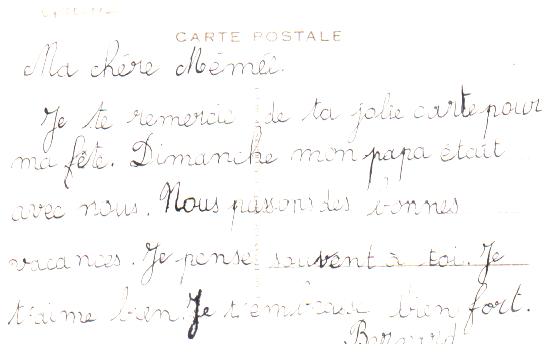 CARTE POSTALE
Ma chère Mémée.
Je te remercie de ta jolie carte pour
ma fête. Dimanche mon papa était
avec nous. Nous passons des bonnes
vacances. Je pense souvent à toi. Je
t'aime bien. Je t'embrasse bien fort.
Bernard